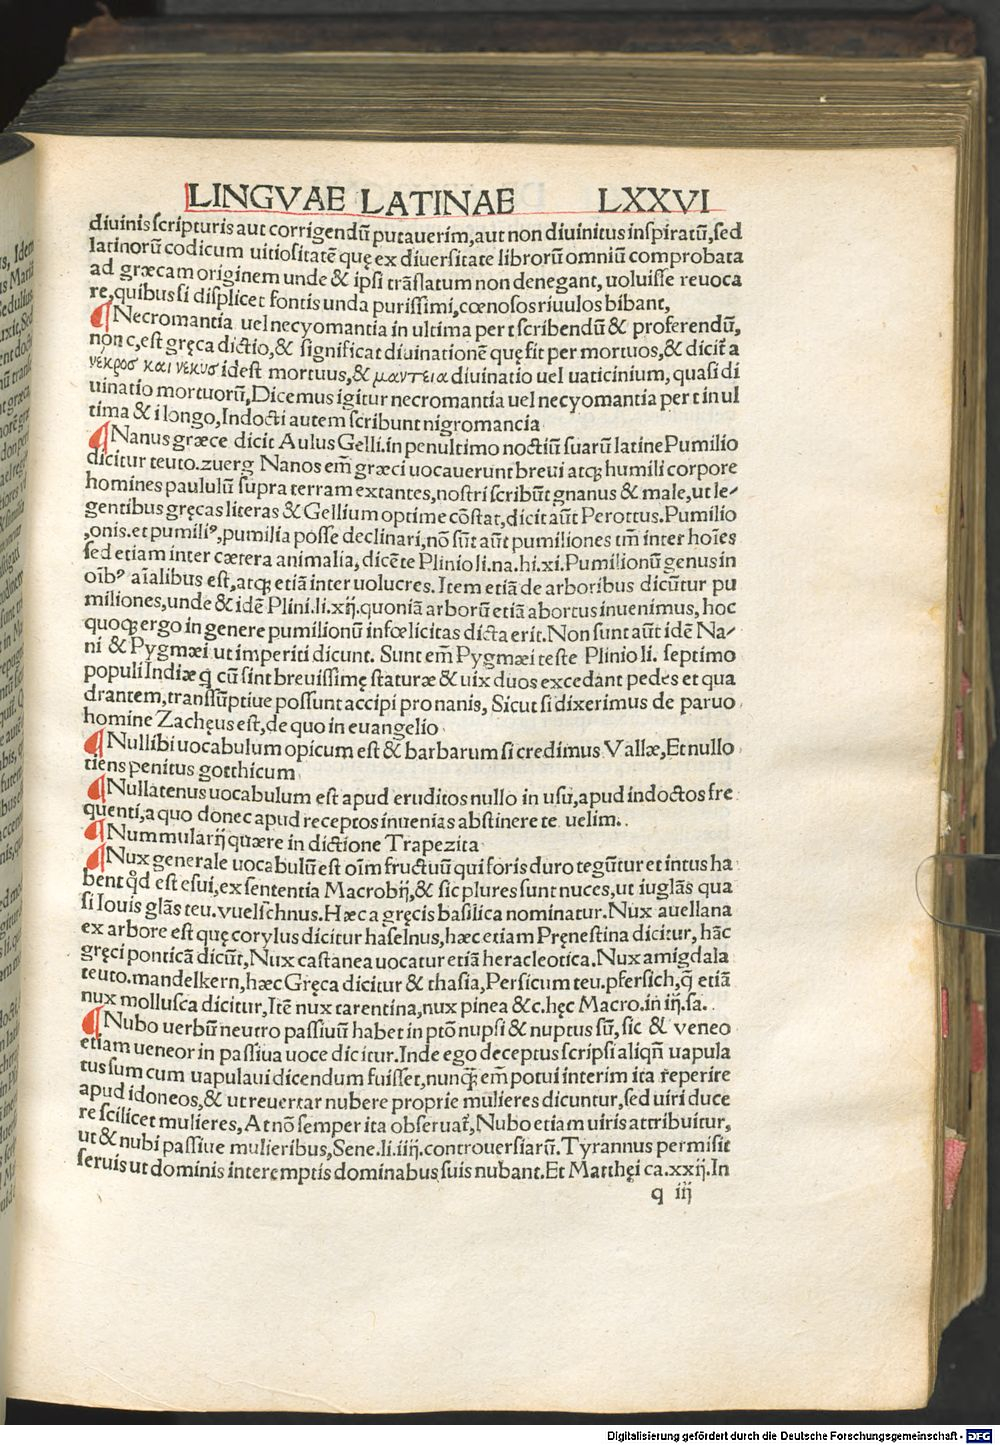 LINGVAE LATINAE LXXVI
diuinis scripturis aut corrigendū putauerim, aut non diuinitus inspiratū, sed
latinorū codicum uitiositatē quę ex diuersitate librorū omniū comprobata
ad græcam originem unde & ipsi trāslatum non denegant, uoluisse reuoca
re, quibus si displicet fontis unda purissimi, cœnosos riuulos bibant,
¶ Necromantia uel necyomantia in ultima per t scribendū & proferendū,
non c, est gręca dictio, & significat diuinationē quę fit per mortuos, & dicit̃ a
νεκροσ και νεκυσ idest mortuus, & μαντεια diuinatio uel uaticinium, quasi di
uinatio mortuorū, Dicemus igitur necromantia uel necyomantia per t in ul
tima & i longo, Indocti autem scribunt nigromancia
¶ Nanus græce dicit Aulus Gelli. in penultimo noctiū suarū latine Pumilio
dicitur teuto. zuerg Nanos em̄ græci uocauerunt breui atqꝫ humili corpore
homines paululū supra terram extantes, nostri scribūt gnanus & male, ut le⸗
gentibus gręcas literas & Gellium optime cōstat, dicit aūt Perottus. Pumilio
,onis. et pumiliꝰ, pumilia posse declinari, nō sūt aūt pumiliones tm̄ inter hoīes
sed etiam inter cætera animalia, dicēte Plinio li. na. hi. xi. Pumilionū genus in
oībꝰ aīalibus est, atqꝫ etiā inter uolucres. Item etiā de arboribus dicūtur pu
miliones, unde & idē Plini. li. xij. quoniā arborū etiā abortus inuenimus, hoc
quoqꝫ ergo in genere pumilionū infœlicitas dicta erit. Non sunt aūt idē Na⸗
ni & Pygmæi ut imperiti dicunt. Sunt em̄ Pygmæi teste Plinio li. septimo
populi Indiæ q̄ cū sint breuissimę staturæ & uix duos excedant pedes et qua
drantem, transsūptiue possunt accipi pro nanis, Sicut si dixerimus de paruo
homine Zachęus est, de quo in euangelio
¶ Nullibi uocabulum opicum est & barbarum si credimus Vallæ, Et nullo
tiens penitus gotthicum
¶ Nullatenus uocabulum est apud eruditos nullo in usu, apud indoctos fre
quenti, a quo donec apud receptos inuenias abstinere te uelim.
¶ Nummularij quære in dictione Trapezita
¶ Nux generale uocabulū est oīm fructuū qui foris duro tegūtur et intus ha
bent qd̄ est esui, ex sententia Macrobij, & sic plures sunt nuces, ut iuglās qua
si Iouis glās teu. vuelschnus. Hæc a gręcis basilica nominatur. Nux auellana
ex arbore est quę corylus dicitur haselnus, hæc etiam Pręnestina dicitur, hāc
gręci ponticā dicūt, Nux castanea uocatur etiā heracleotica. Nux amigdala
teuto. mandelkern, hæc Gręca dicitur & thasia, Persicum teu. pfersich, q̄ etiā
nux mollusca dicitur, Itē nux tarentina, nux pinea &c. hęc Macro. in iij. sa.
¶ Nubo uerbū neutro passiuū habet in ptō nupsi & nuptus sū, sic & veneo
etiam ueneor in passiua uoce dicitur. Inde ego deceptus scripsi aliqn̄ uapula
tus sum cum uapulaui dicendum fuisset, nunqꝫ em̄ potui interim ita reperire
apud idoneos, & ut reuertar nubere proprie mulieres dicuntur, sed uiri duce
re scilicet mulieres, At nō semper ita obseruat̃, Nubo etiam uiris attribuitur,
ut & nubi passiue mulieribus, Sene. li. iiij. controuersiarū. Tyrannus permisit
seruis ut dominis interemptis dominabus suis nubant. Et Matthęi ca. xxij. In
q iij
Digitalisierung gefördert durch die Deutsche Forschungsgemeinschaft - DFG